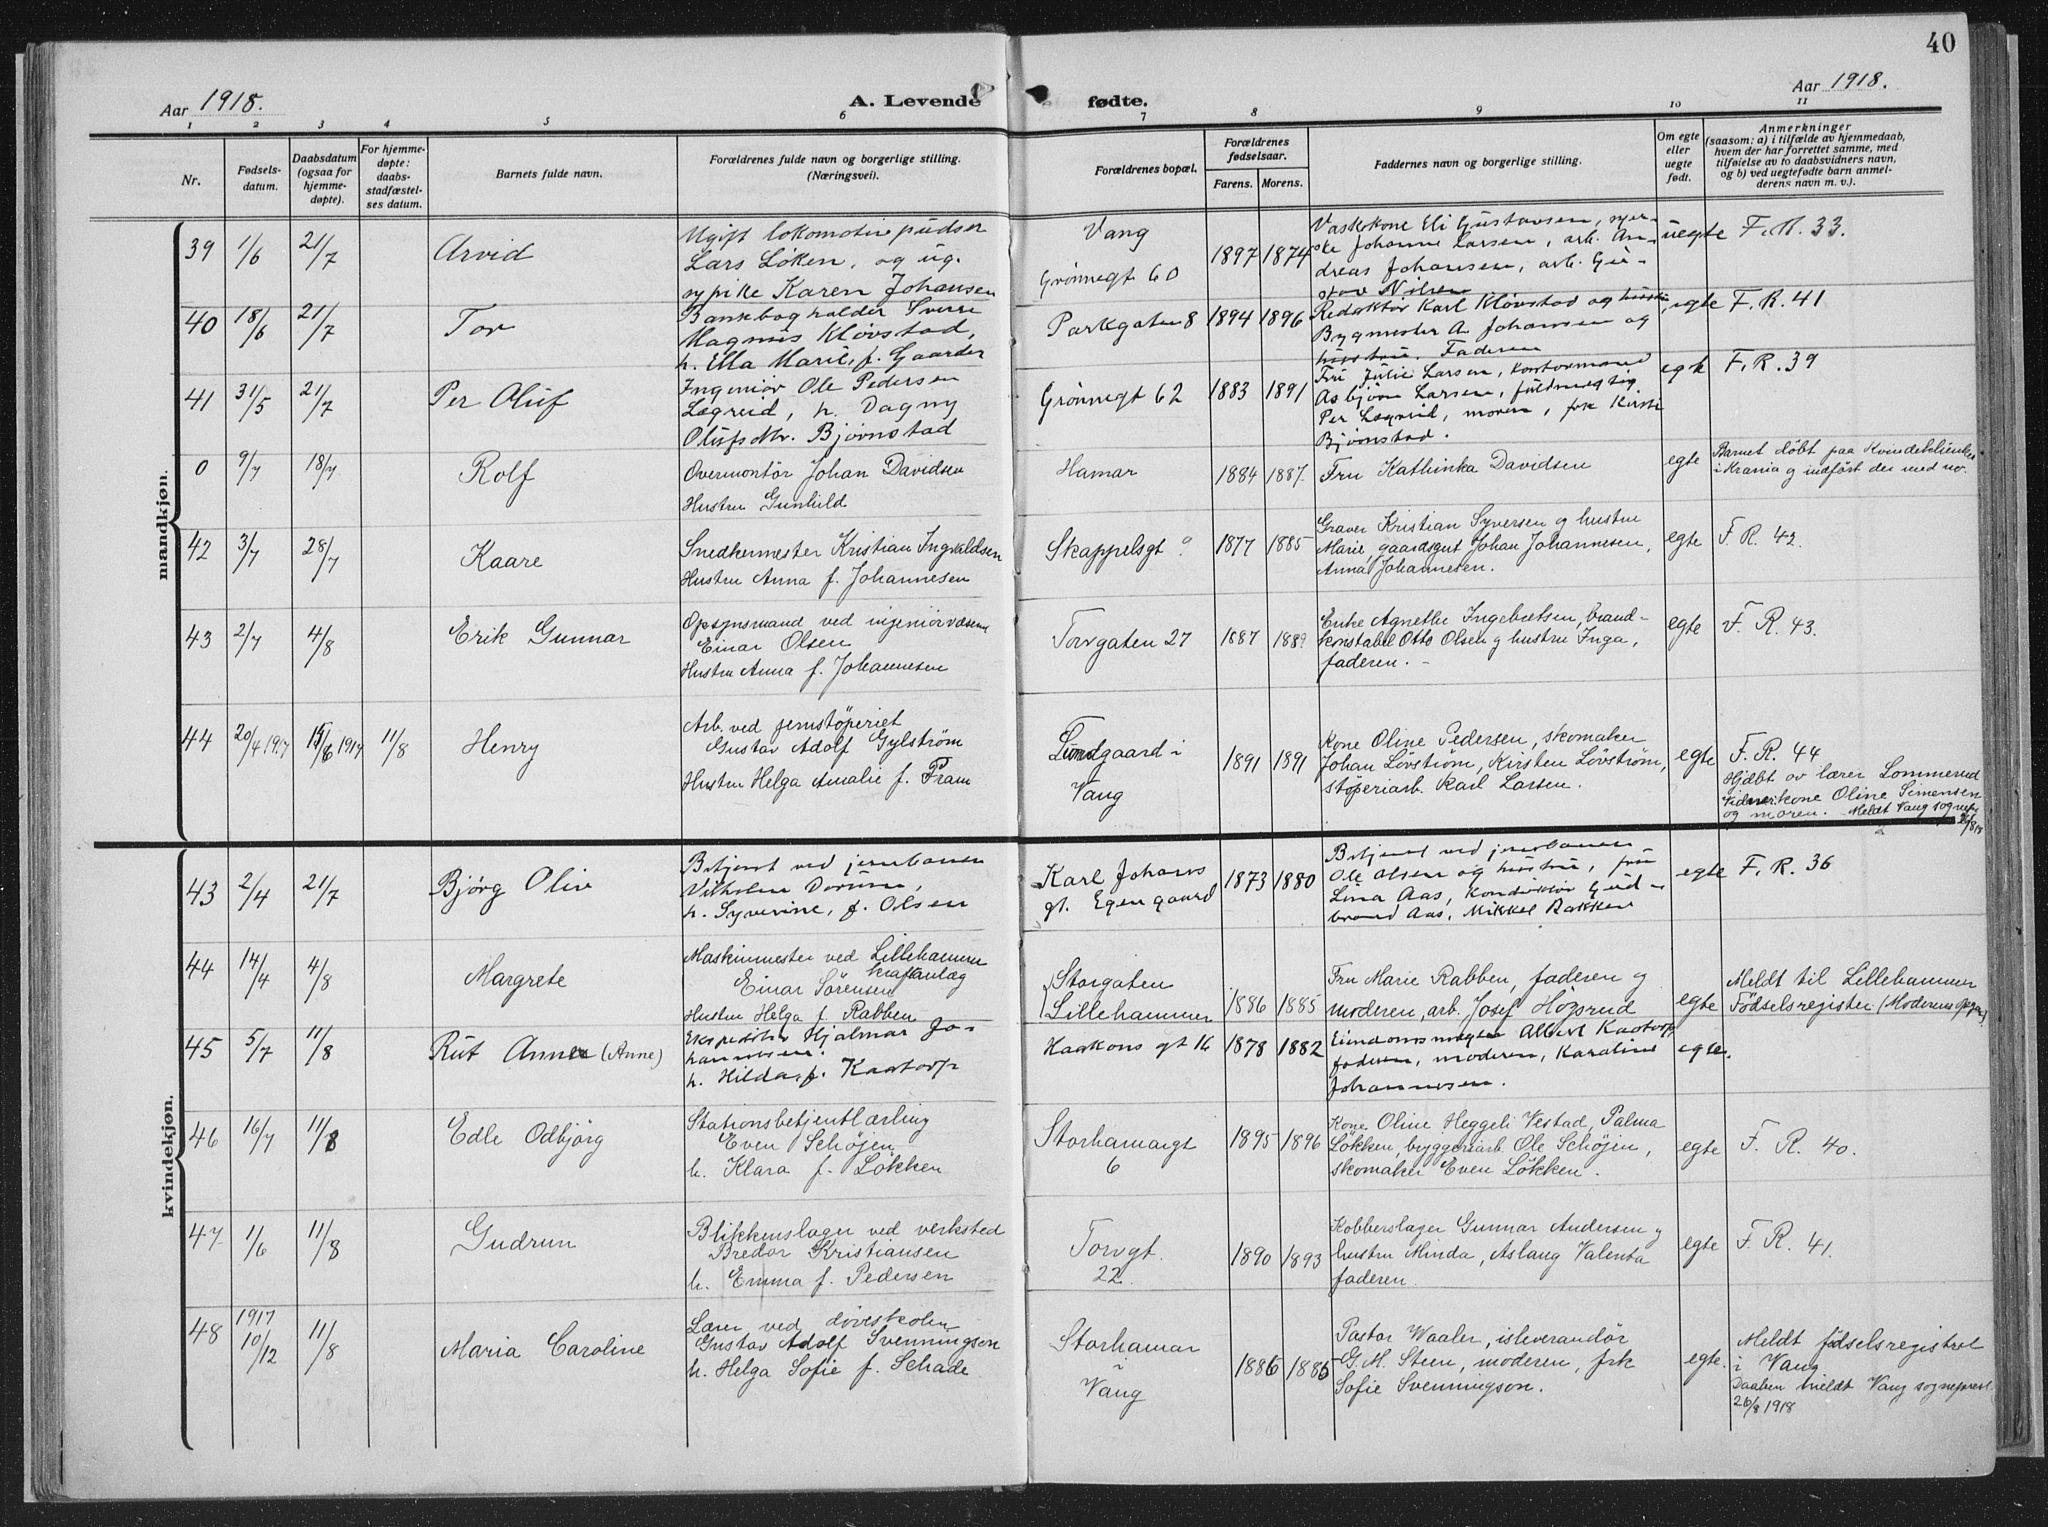 40
Aar 1918.
A. Levende fødte.
Aar 1918.
1 2 3 4 5 6 7 8 9 10 11
Nr.
Fødsels-
datum.
Daabsdatum
(ogsaa for
hjemme-
døpte).
For hjemme-
døpte:
daabs-
stadfæstel-
ses datum.
Barnets fulde navn.
Forældrenes fulde navn og borgerlige stilling.
(Næringsvei).
Forældrenes bopæl.
Forældrenes
fødselsaar.
Farens. Morens.
Faddernes navn og borgerlige stilling.
Om egte
eller
uegte
født.
Anmerkninger
(saasom: a) i tilfælde av hjemmedaab,
hvem der har forrettet samme, med
tilføielse av to daabsvidners navn,
og b) ved uegtefødte barn anmel-
derens navn m. v.).
mandkjøn.
39 1/6 21/7 Arvid
Ugift lokomotivpudser
Lars Løken, og ug.
sypike Karen Johansen
Vang
Grønnegt 60
1897 1874
Vaskekone Eli Gustavsen, syer-
ske Johanne Larsen, arb. An-
dreas Johansen, arb. Gu-
stav Nilsen
uegte F. R. 33.
40 18/6 21/7 Tor
Bankbogholder Sverre
Magnus Kløvstad,
h. Ella Marie, f. Gaarder
Parkgaten 8 1894 1896
Redaktør Karl Kløvstad og hustru,
Bygmester A. Johansen og
hustru. Faderen
egte F. R. 41
41 31/5 21/7 Per Oluf
Ingeniør Ole Pedersen
Lægreid, h. Dagny
Olufsdtr. Bjørnstad
Grønnegt 62 1883 1891
Fru Julie Larsen, kontormand
Asbjørn Larsen, fuldmegtig
Per Lægreid, moren, frk Kirsti
Bjørnstad.
egte F. R. 39
0 9/7 18/7 Rolf
Overmontør Johan Davidsen
Hustru Gunhild
Hamar 1884 1887.
Fru Kathinka Davidsen
egte
Barnet døbt paa Kvindeklinikken
i Krania og indført der med no.
42 3/7 28/7 Kaare
Snedkermester Kristian Ingvaldsen
Hustru Anna f. Johannesen
Skappelsgt 9 1877 1885
Graver Kristian Syversen og hustru
Marie, gaardsgut Johan Johannesen,
Anna Johannesen.
egte F. R. 42.
43 2/7 4/8 Erik Gunnar
Opsynsmand ved ingeniørvæsenet
Einar Olsen
Hustru Anna f. Johannesen
Torvgaten 27 1887 1889
Enke Agnethe Ingebretsen, brand-
konstabel Otto Olsen og hustru Inga,
faderen. -
egte F. R. 43.
44 20/4 1917 15/6 1917 11/8 Henry
Arb. ved jernstøperiet
Gustav Adolf Gylstrøm
Hustru Helga Amalie f. Fram
Lundgaard i
Vang
1891 1891
Kone Oline Pedersen, skomaker
Johan Løvstrøm, Kirsten Løvstrøm,
støperiarb. Karl Larsen.
egte F. R. 44
Hjdøbt av lærer Lommerud
Vidner: kone Oline Simensen
og moren. Meldt Vang sognepr.
kvindekjøn.
43 2/4 21/7 Bjørg Oliv
Betjent ved jernbanen
Vilhelm Dorum,
h. Syverine, f. Olsen
Karl Johans
gt. Egen gaard
1873 1880
Betjent ved jernbanen
Ole Olsen og hustru, fru
Lina Aas, konduktør Gud-
brand Aas, Mikkel Bakken
egte F. R. 36
44 14/4 4/8 Margrete
Maskinmester ved Lillehammer
kraftanlæg
Einar Sørensen
Hustru Helga f. Rabben
Storgaten
Lillehammer
1886 1885
Fru Marie Rabben, faderen og
moderen, arb. Josef Høgsrud
egte
Meldt til Lillehammer
Fødselsregister (Moderens opgave)
45 5/7 11/8 Rut Anne (Anne)
Ekspeditør Hjalmar Jo-
hannesen.
h. Hilda, f. Kastorp
Haakons gt 16 1878 1882
Eiendomsmegler Albert Kastorp
faderen, moderen, Karoline
Johannesen.
egte.
46 16/7 11/8 Edle Odbjørg
Stationsbetjentlærling
Even Schøjen
h. Klara f. Løkken
Storhamargt
6
1895 1896
Kone Oline Heggeli Vestad, Palma
Løkken, byggeriarb. Ole Schøjen,
skomaker Even Løkken.
egte F. R. 40.
47 1/6 11/8 Gudrun
Blikkenslager ved verksted
Bredor Kristiansen
h. Emma f. Pedersen
Torvgt.
22.
1890 1893
Kobberslager Gunnar Andersen og
hustru Minda, Aslaug Valenta
faderen.
egte F. R. 41.
48 1917 10/12 11/8 Maria Caroline
Lærer ved døveskolen
Gustav Adolf Svenningson
h. Helga Sofie f. Schade
Storhamar
i
Vang
1886 1886
Pastor Waaler, isleverandør
G. M. Steen, moderen, frk
Sofie Svenningson.
egte.
Meldt fødselsregistret
i Vang
Daaben meldt Vang sogneprest
26/8 1918